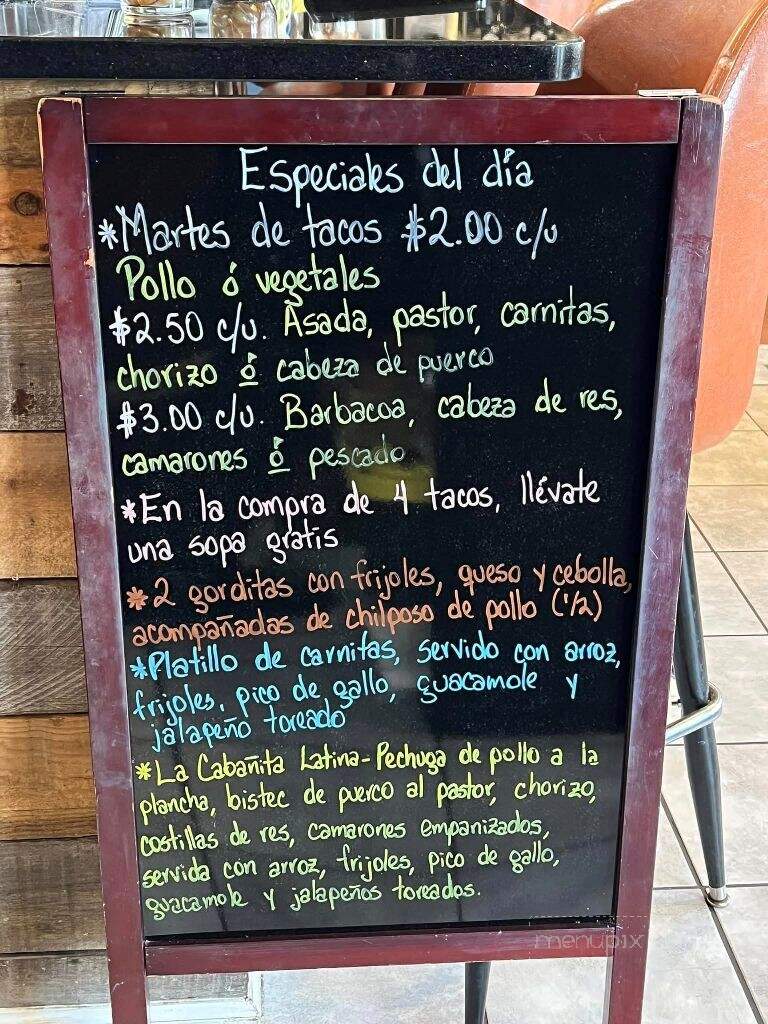 Especiales del día
*Martes de tacos $2.00 c/u
Pollo ó vegetales
$2.50 c/u. Asada, pastor, carnitas,
chorizo ó cabeza de puerco
$3.00 c/u. Barbacoa, cabeza de res,
camarones ó pescado
*En la compra de 4 tacos, llévate
una sopa gratis
*2 gorditas con frijoles, queso y cebolla,
acompañadas de chilposo de pollo (1/2)
*Platillo de carnitas, servido con arroz,
frijoles, pico de gallo, guacamole y
jalapeño toreado
*La Cabañita Latina-Pechuga de pollo a la
plancha, bistec de puerco al pastor, chorizo,
costillas de res, camarones empanizados,
servida con arroz, frijoles, pico de gallo,
guacamole y jalapeños toreados.
menupix